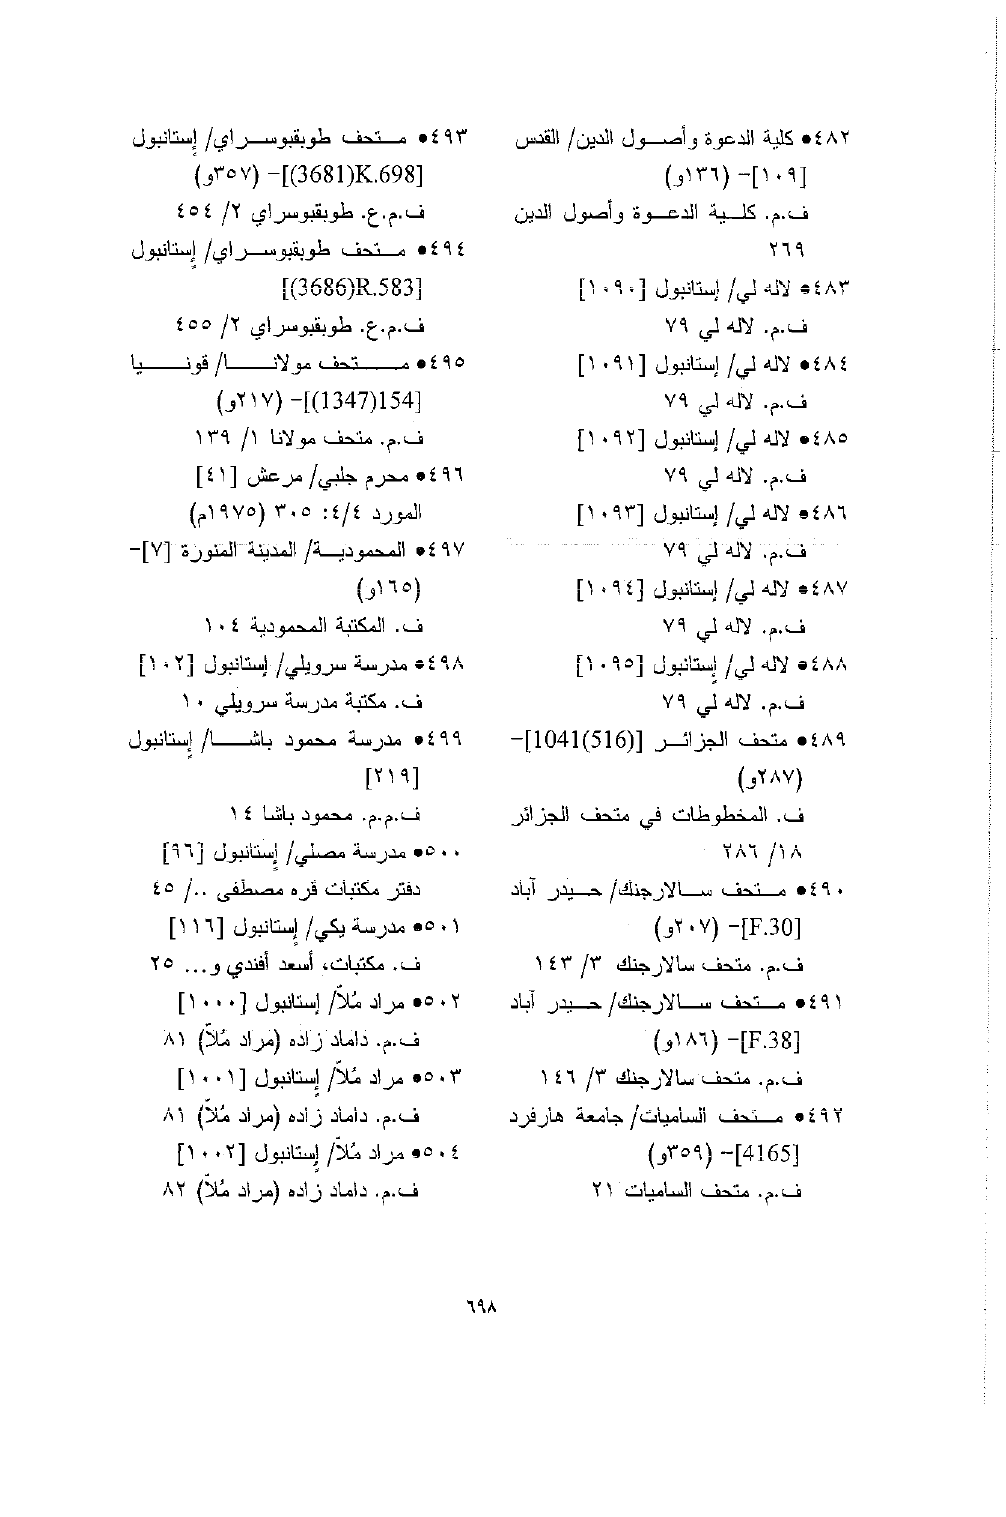 ٤٨٢• كلية الدعوة وأصول الدين/ القدس
[١٠٩]– (١٣٦و)
ف.م. كلية الدعوة وأصول الدين
٢٦٩
٤٨٣• لاله لي/ إستانبول [١٠٩٠]
ف.م. لاله لي ٧٩
٤٨٤• لاله لي/ إستانبول [١٠٩١]
ف.م. لاله لي ٧٩
٤٨٥• لاله لي/ إستانبول [١٠٩٢]
ف.م. لاله لي ٧٩
٤٨٦• لاله لي/ إستانبول [١٠٩٣]
ف.م. لاله لي ٧٩
٤٨٧• لاله لي/ إستانبول [١٠٩٤]
ف.م. لاله لي ٧٩
٤٨٨• لاله لي/ إستانبول [١٠٩٥]
ف.م. لاله لي ٧٩
٤٨٩• متحف الجزائر [1041(516)]–
(٢٨٧و)
ف. المخطوطات في متحف الجزائر
١٨/ ٢٨٦
٤٩٠• متحف سالارجنك/ حيدر آباد
[F.30]– (٢٠٧و)
ف.م. متحف سالارجنك ٣/ ١٤٣
٤٩١• متحف سالارجنك/ حيدر آباد
[F.38]– (١٨٦و)
ف.م. متحف سالارجنك ٣/ ١٤٦
٤٩٢• متحف الساميات/ جامعة هارفرد
[4165]– (٣٥٩و)
ف.م. متحف الساميات ٢١
٤٩٣• متحف طوبقبوسراي/ إستانبول
[(3681)K.698]– (٣٥٧و)
ف.م.ع. طوبقبوسراي ٢/ ٤٥٤
٤٩٤• متحف طوبقبوسراي/ إستانبول
[(3686)R.583]
ف.م.ع. طوبقبوسراي ٢/ ٤٥٥
٤٩٥• متحف مولانا/ قونيا
[(1347)154]– (٢١٧و)
ف.م. متحف مولانا ١/ ١٣٩
٤٩٦• محرم جلبي/ مرعش [٤١]
المورد ٤/٤: ٣٠٥ (١٩٧٥م)
٤٩٧• المحمودية/ المدينة المنورة [٧]–
(١٦٥و)
ف. المكتبة المحمودية ١٠٤
٤٩٨• مدرسة سرويلي/ إستانبول [١٠٢]
ف. مكتبة مدرسة سرويلي ١٠
٤٩٩• مدرسة محمود باشا/ إستانبول
[٢١٩]
ف.م.م. محمود باشا ١٤
٥٠٠• مدرسة مصلي/ إستانبول [٩٦]
دفتر مكتبات قره مصطفى ../ ٤٥
٥٠١• مدرسة يكي/ إستانبول [١١٦]
ف. مكتبات، أسعد أفندي و... ٢٥
٥٠٢• مراد مُلاّ/ إستانبول [١٠٠٠]
ف.م. داماد زاده (مراد مُلاّ) ٨١
٥٠٣• مراد مُلاّ/ إستانبول [١٠٠١]
ف.م. داماد زاده (مراد مُلاّ) ٨١
٥٠٤• مراد مُلاّ/ إستانبول [١٠٠٢]
ف.م. داماد زاده (مراد مُلاّ) ٨٢
٦٩٨